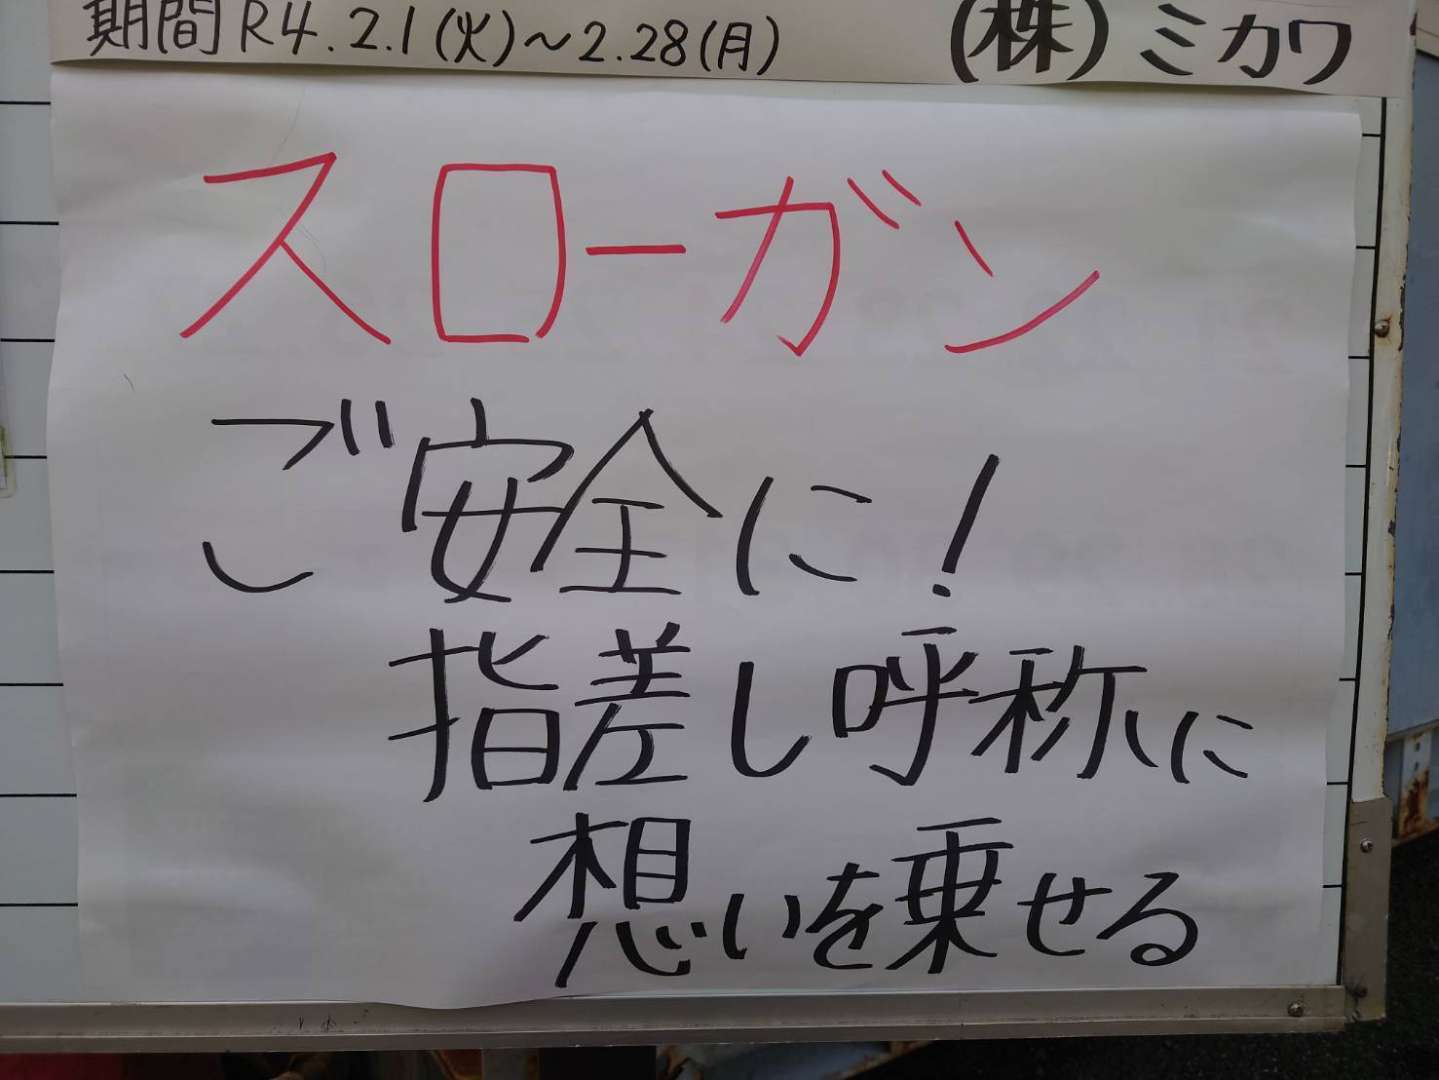 期間R4.2.1(火)~2.28(月) (株)ミカワ
スローガン
ご安全に!
指差し呼称に
想いを乗せる